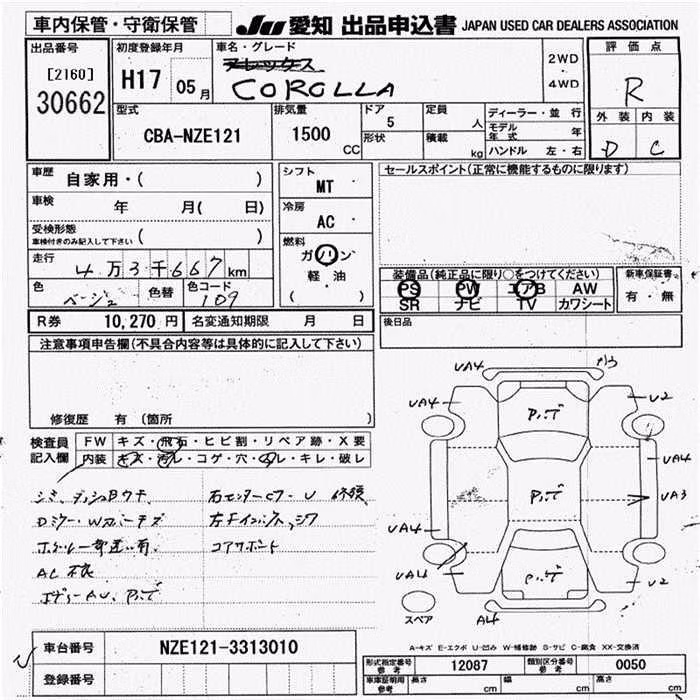 車内保管・守衛保管
JU 愛知 出品申込書 JAPAN USED CAR DEALERS ASSOCIATION
出品番号
[2160]
30662
初度登録年月
H17 05月
車名・グレード
COROLLA
2WD
・
4WD
評価点
R
外装 内装
D C
型式
CBA-NZE121
排気量
1500 CC
ドア
5
形状
定員
人
積載
kg
ディーラー・並行
モデル年式 年
ハンドル 左・右
車歴 自家用・( )
車検 年 月( 日)
受検形態
車検付きのみ記入して下さい ( )
走行 4万3千667km
色 ベージュ 色替 色コード 109
シフト
MT ・
冷房
AC ・
燃料
ガソリン
・
軽・油
( )
セールスポイント(正常に機能するものに限ります)
装備品(純正品に限り○をつけてください)
PS PW エアB AW
SR ナビ TV カワシート
新車保証書
有・無
R券 10,270円 名変通知期限 月 日
後日品
注意事項申告欄(不具合内容等は具体的に記入して下さい)
修復歴 有(箇所 )
検査員
記入欄
FW キズ・飛石・ヒビ割・リペア跡・X要
内装 キズ・汚レ・コゲ・穴・スレ・キレ・破レ
AC不良
コアサポート
UA4
UA4
U2
UA4
UA3
UA4
UA4
U2
A4
スペア
A-キズ E-エクボ U-凹み W-補修跡 S-サビ C-腐食 XX-交換済
車台番号 NZE121-3313010
登録番号
形式指定番号
参考
12087
類別区分番号
参考
0050
車庫証明用
参考
長さ cm 幅 cm 高さ cm